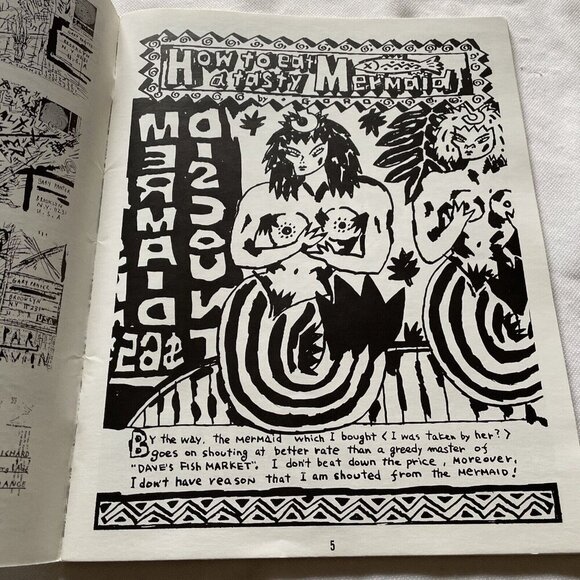 GARY PANTER
BROOKLYN
U.S.A
GARY PANTER
BROOKLYN
PAR
How to eat
a tasty Mermaid!
MERMAID
DISCOUNT
By the way, the MERMAID which I bought < I was taken by her? >
goes on shouting at better rate than a greedy master of
"DAVE'S FISH MARKET". I don't beat down the price, moreover,
I don't have reason that I am shouted from the MERMAID!
5